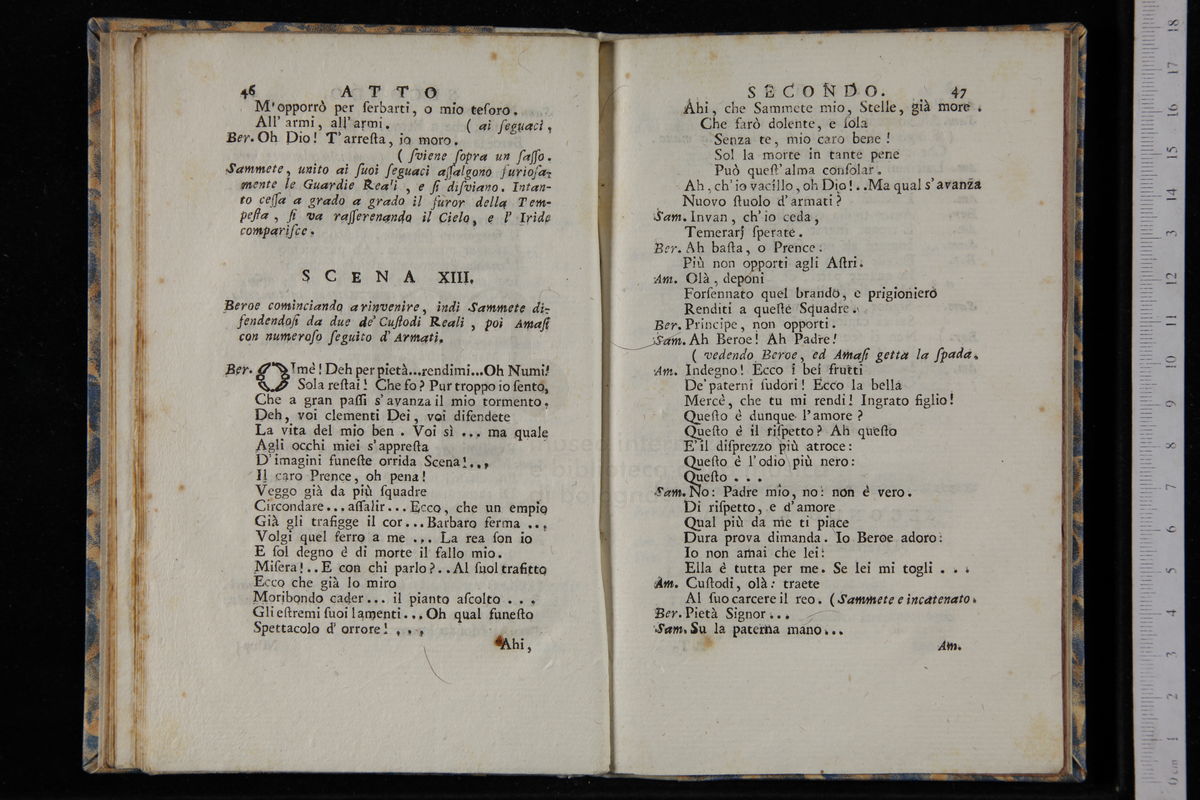 46 ATTO
M'opporrò per ſerbarti, o mio teſoro.
All' armi, all' armi. ( ai ſeguaci,
Ber. Oh Dio! T' arreſta, io moro.
( ſviene ſopra un ſaſſo.
Sammete, unito ai ſuoi ſeguaci aſſalgono furioſa-
mente le Guardie Reali, e ſi diſviano. Intan-
to ceſſa a grado a grado il furor della Tem-
peſta, ſi va raſſerenando il Cielo, e l' Iride
compariſce.
SCENA XIII.
Beroe cominciando a rinvenire, indi Sammete di-
fendendoſi da due de' Cuſtodi Reali, poi Amaſi
con numeroſo ſeguito d' Armati.
Ber. OImè! Deh per pietà...rendimi...Oh Numi!
Sola reſtai! Che fo? Pur troppo io ſento,
Che a gran paſſi s' avanza il mio tormento.
Deh, voi clementi Dei, voi difendete
La vita del mio ben. Voi sì ... ma quale
Agli occhi miei s' appreſta
D' imagini funeſte orrida Scena!...
Il caro Prence, oh pena!
Veggo già da più ſquadre
Circondare...aſſalir...Ecco, che un empio
Già gli trafigge il cor...Barbaro ferma ...
Volgi quel ferro a me ... La rea ſon io
E ſol degno è di morte il fallo mio.
Miſera!..E con chi parlo?..Al ſuol trafitto
Ecco che già lo miro
Moribondo cader... il pianto aſcolto ...
Gli eſtremi ſuoi lamenti...Oh qual funeſto
Spettacolo d' orrore! ...
Ahi,
SECONDO. 47
Ahi, che Sammete mio, Stelle, già more.
Che farò dolente, e ſola
Senza te, mio caro bene!
Sol la morte in tante pene
Può queſt' alma conſolar.
Ah, ch' io vacillo, oh Dio!..Ma qual s' avanza
Nuovo ſtuolo d' armati?
Sam. Invan, ch' io ceda,
Temerarj ſperate.
Ber. Ah baſta, o Prence.
Più non opporti agli Aſtri.
Am. Olà, deponi
Forſennato quel brando, e prigioniero
Renditi a queſte Squadre.
Ber. Principe, non opporti.
Sam. Ah Beroe! Ah Padre!
( vedendo Beroe, ed Amaſi getta la ſpada.
Am. Indegno! Ecco i bei frutti
De' paterni ſudori! Ecco la bella
Mercè, che tu mi rendi! Ingrato figlio!
Queſto è dunque l' amore?
Queſto è il riſpetto? Ah queſto
E' il diſprezzo più atroce:
Queſto è l' odio più nero:
Queſto ...
Sam. No: Padre mio, no: non è vero.
Di riſpetto, e d' amore
Qual più da me ti piace
Dura prova dimanda. Io Beroe adoro:
Io non amai che lei:
Ella è tutta per me. Se lei mi togli ...
Am. Cuſtodi, olà: traete
Al ſuo carcere il reo. (Sammete e incatenato.
Ber. Pietà Signor...
Sam. Su la paterna mano...
Am.